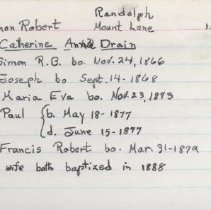 Randolph
mon Robert Mount Lane
Catherine Anna Drain
Simon R.B. bo. Nov. 24, 1866
Joseph bo Sept. 14-1868
Maria Eva bo. Nov 23, 1873
Paul { b. May 18-1877
d. June 15-1877
Francis Robert bo. Mar. 31-1879
wife both baptized in 1888